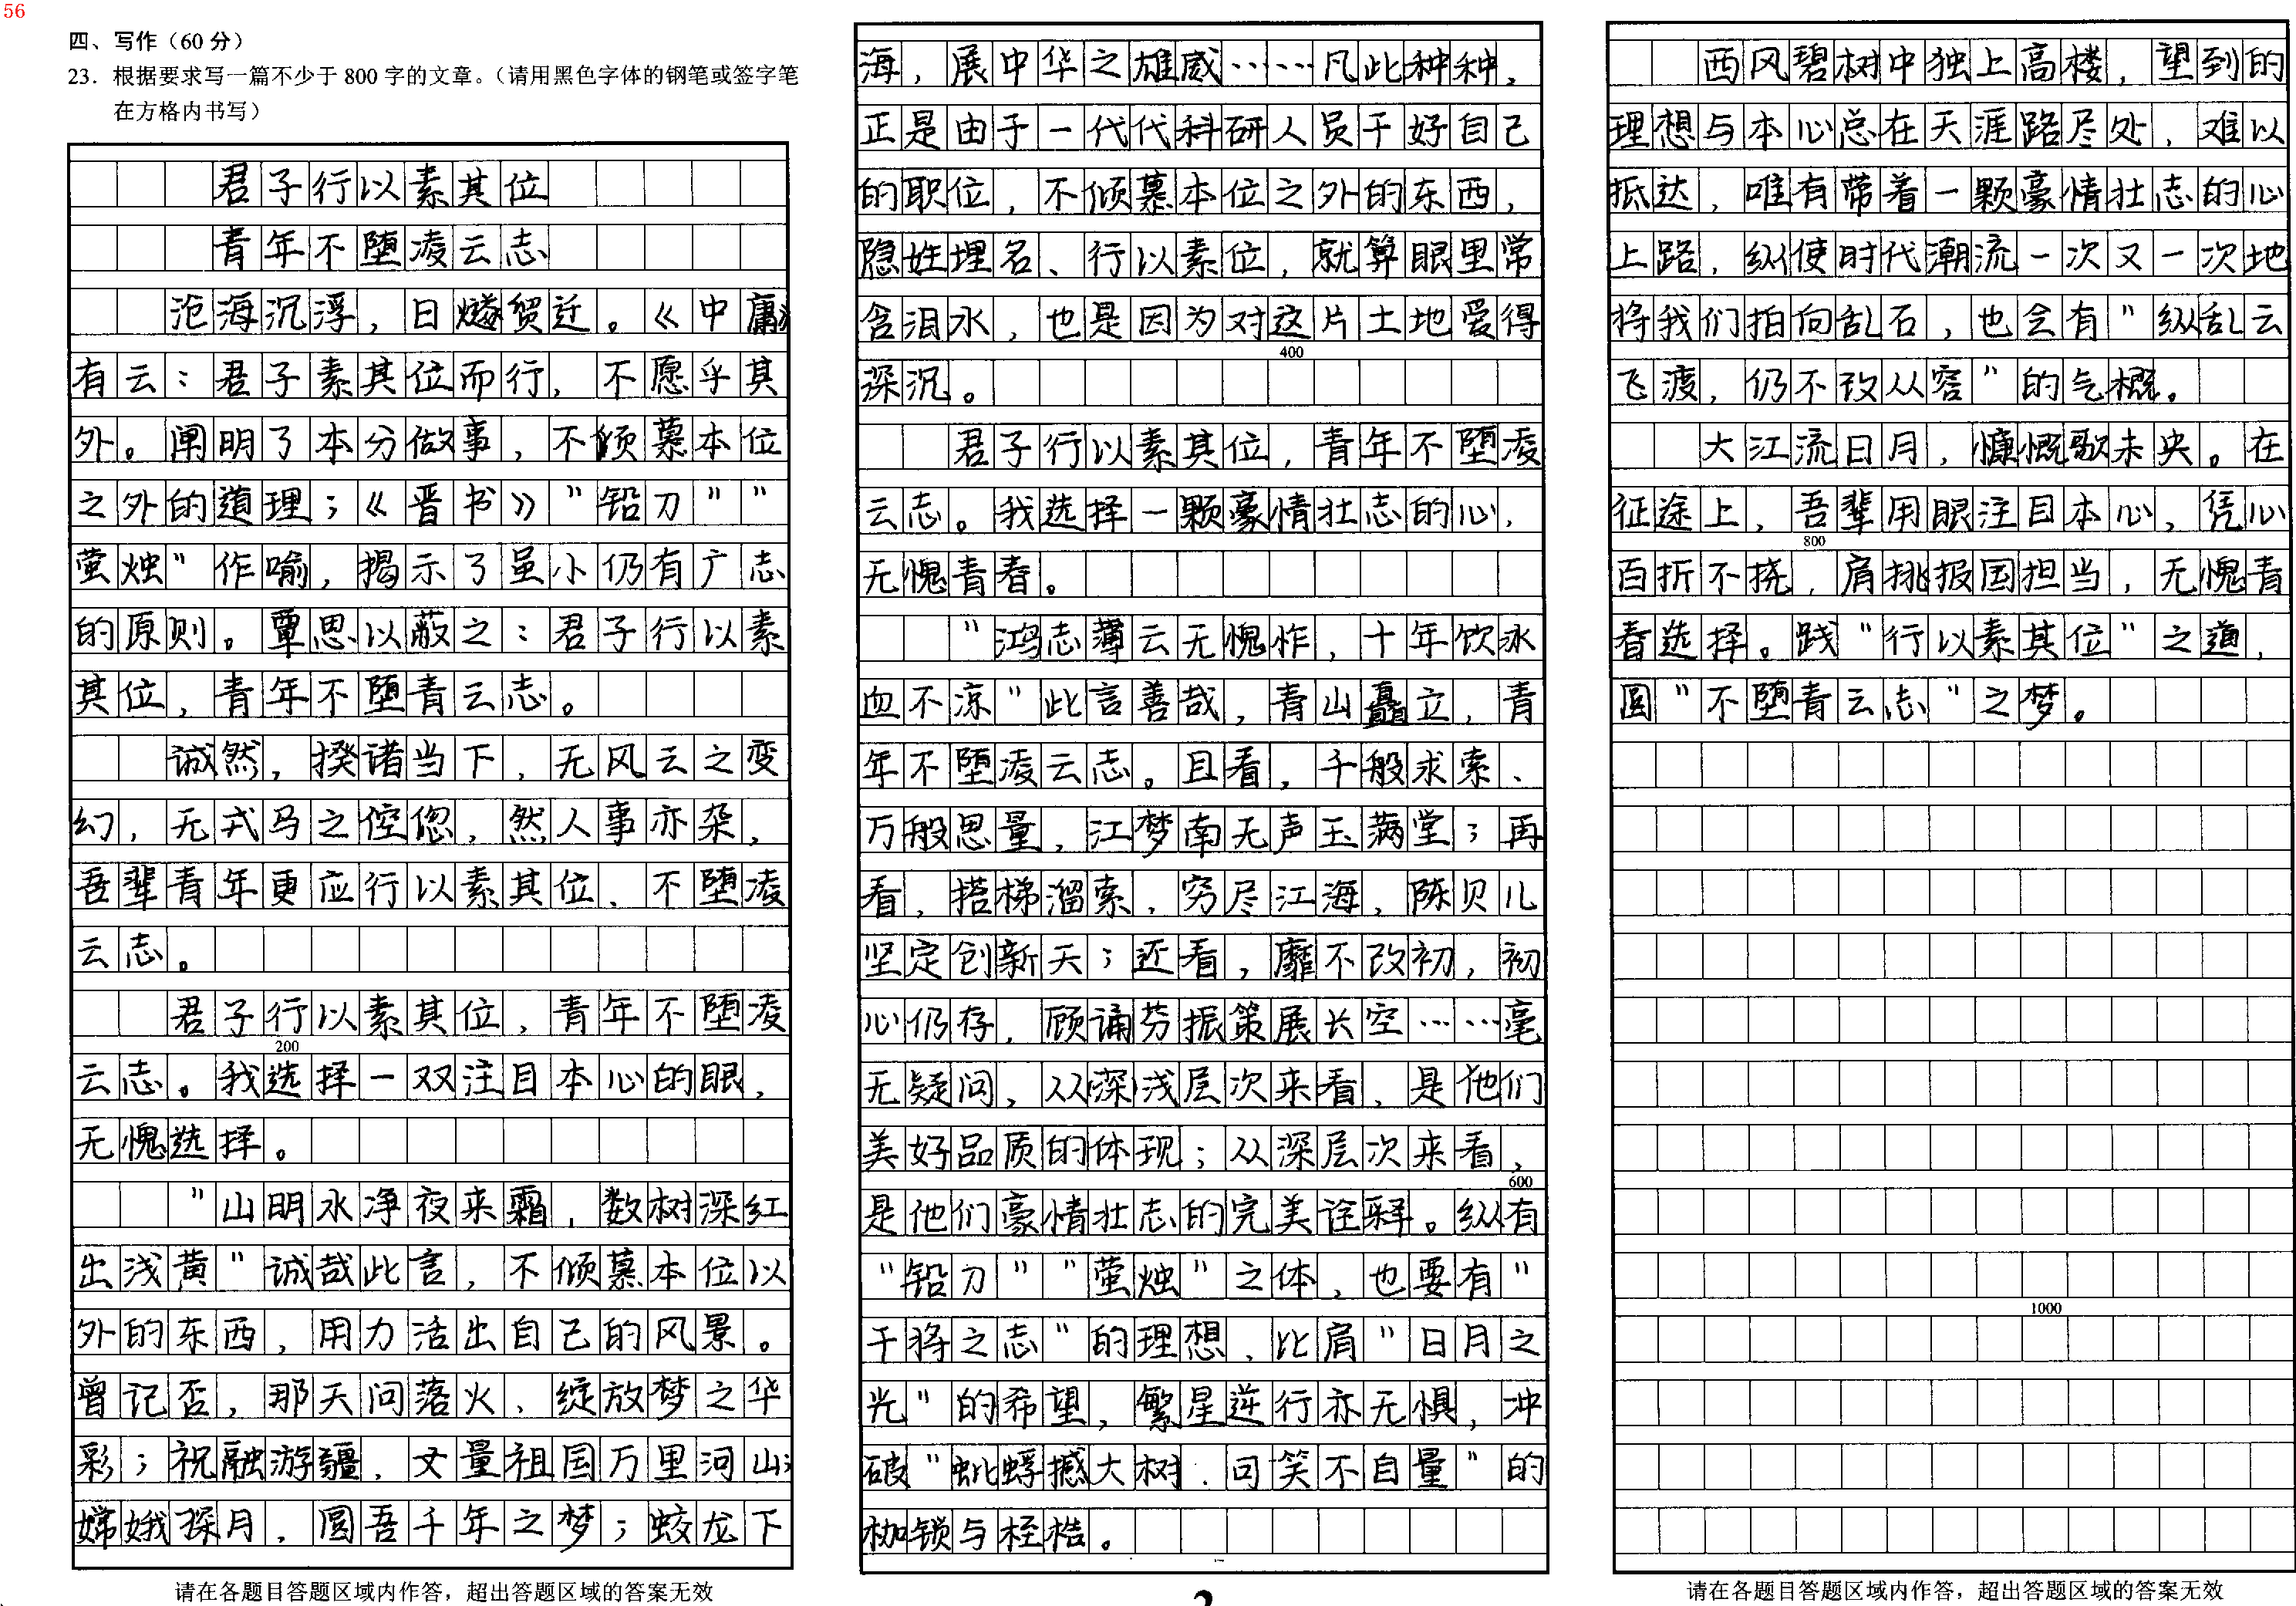 56
四、写作（60 分）
23．根据要求写一篇不少于 800 字的文章。（请用黑色字体的钢笔或签字笔
在方格内书写）
君子行以素其位
青年不堕凌云志
沧海沉浮，日燧贸迁。《中庸》
有云：君子素其位而行，不愿乎其
外。阐明了本分做事，不倾慕本位
之外的道理；《晋书》"铅刀""
萤烛"作喻，揭示了虽小仍有广志
的原则。覃思以蔽之：君子行以素
其位，青年不堕青云志。
诚然，揆诸当下，无风云之变
幻，无戎马之倥偬，然人事亦杂，
吾辈青年更应行以素其位、不堕凌
云志。
君子行以素其位，青年不堕凌
200
云志。我选择一双注目本心的眼，
无愧选择。
"山明水净夜来霜，数树深红
出浅黄"诚哉此言，不倾慕本位以
外的东西，用力活出自己的风景。
曾记否，那天问落火、绽放梦之华
彩；祝融游疆，丈量祖国万里河山；
嫦娥探月，圆吾千年之梦；蛟龙下
请在各题目答题区域内作答，超出答题区域的答案无效
海，展中华之雄威……凡此种种，
正是由于一代代科研人员干好自己
的职位，不倾慕本位之外的东西，
隐姓埋名、行以素位，就算眼里常
含泪水，也是因为对这片土地爱得
400
深沉。
君子行以素其位，青年不堕凌
云志。我选择一颗豪情壮志的心，
无愧青春。
"鸿志薄云无愧怍，十年饮冰
血不凉"此言善哉，青山矗立，青
年不堕凌云志。且看，千般求索、
万般思量，江梦南无声玉满堂；再
看，搭梯溜索，穷尽江海，陈贝儿
坚定创新天；还看，靡不改初，初
心仍存，顾诵芬振策展长空……毫
无疑问，从深浅层次来看，是他们
美好品质的体现；从深层次来看，
600
是他们豪情壮志的完美诠释。纵有
"铅刀""萤烛"之体，也要有"
干将之志"的理想，比肩"日月之
光"的希望，繁星逆行亦无惧，冲
破"蚍蜉撼大树，可笑不自量"的
枷锁与桎梏。
2
西风碧树中独上高楼，望到的
理想与本心总在天涯路尽处，难以
抵达，唯有带着一颗豪情壮志的心
上路，纵使时代潮流一次又一次地
将我们拍向乱石，也会有"纵乱云
飞渡，仍不改从容"的气概。
大江流日月，慷慨歌未央。在
征途上，吾辈用眼注目本心，凭心
800
百折不挠，肩挑报国担当，无愧青
春选择。践"行以素其位"之道，
圆"不堕青云志"之梦。
1000
请在各题目答题区域内作答，超出答题区域的答案无效